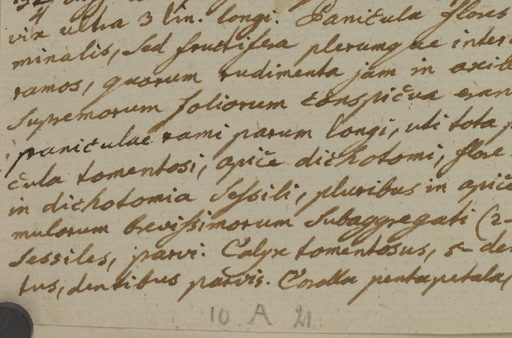 vix ultra 3 lin. longi. Panicula flores
minalis, sed fructifera plerumque inter
ramos, quorum rudimenta jam in axill
supremorum foliorum conspicua eran
paniculae rami parum longi, uti tota p
cula tomentosi, apice dichotomi, flore
in dichotomia sessili, pluribus in apice
mulorum brevissimorum subaggregati (2-
sessiles, parvi. Calyx tomentosus, 5-den
tus, dentibus parvis. Corolla pentapetala,
10 A 21